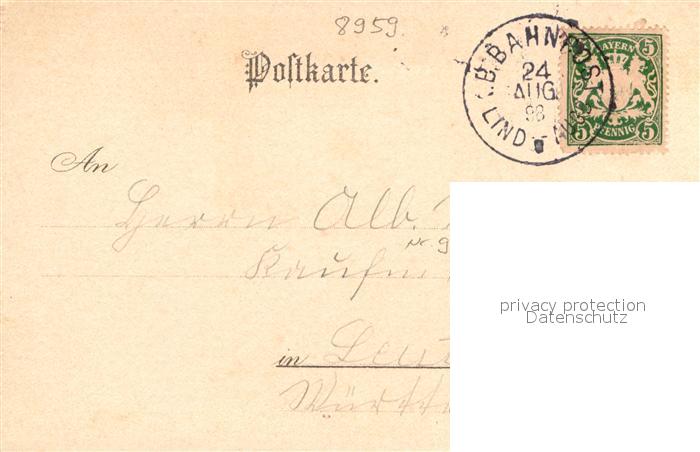 8959.
Postkarte.
K.B.BAHNPOST
24
AUG.
98
LIND.-
BAYERN
5 5
PFENNIG
5 5
An
Herrn Alb.
Nr. 9
Kaufm
in Leut
Württe
privacy protection
Datenschutz